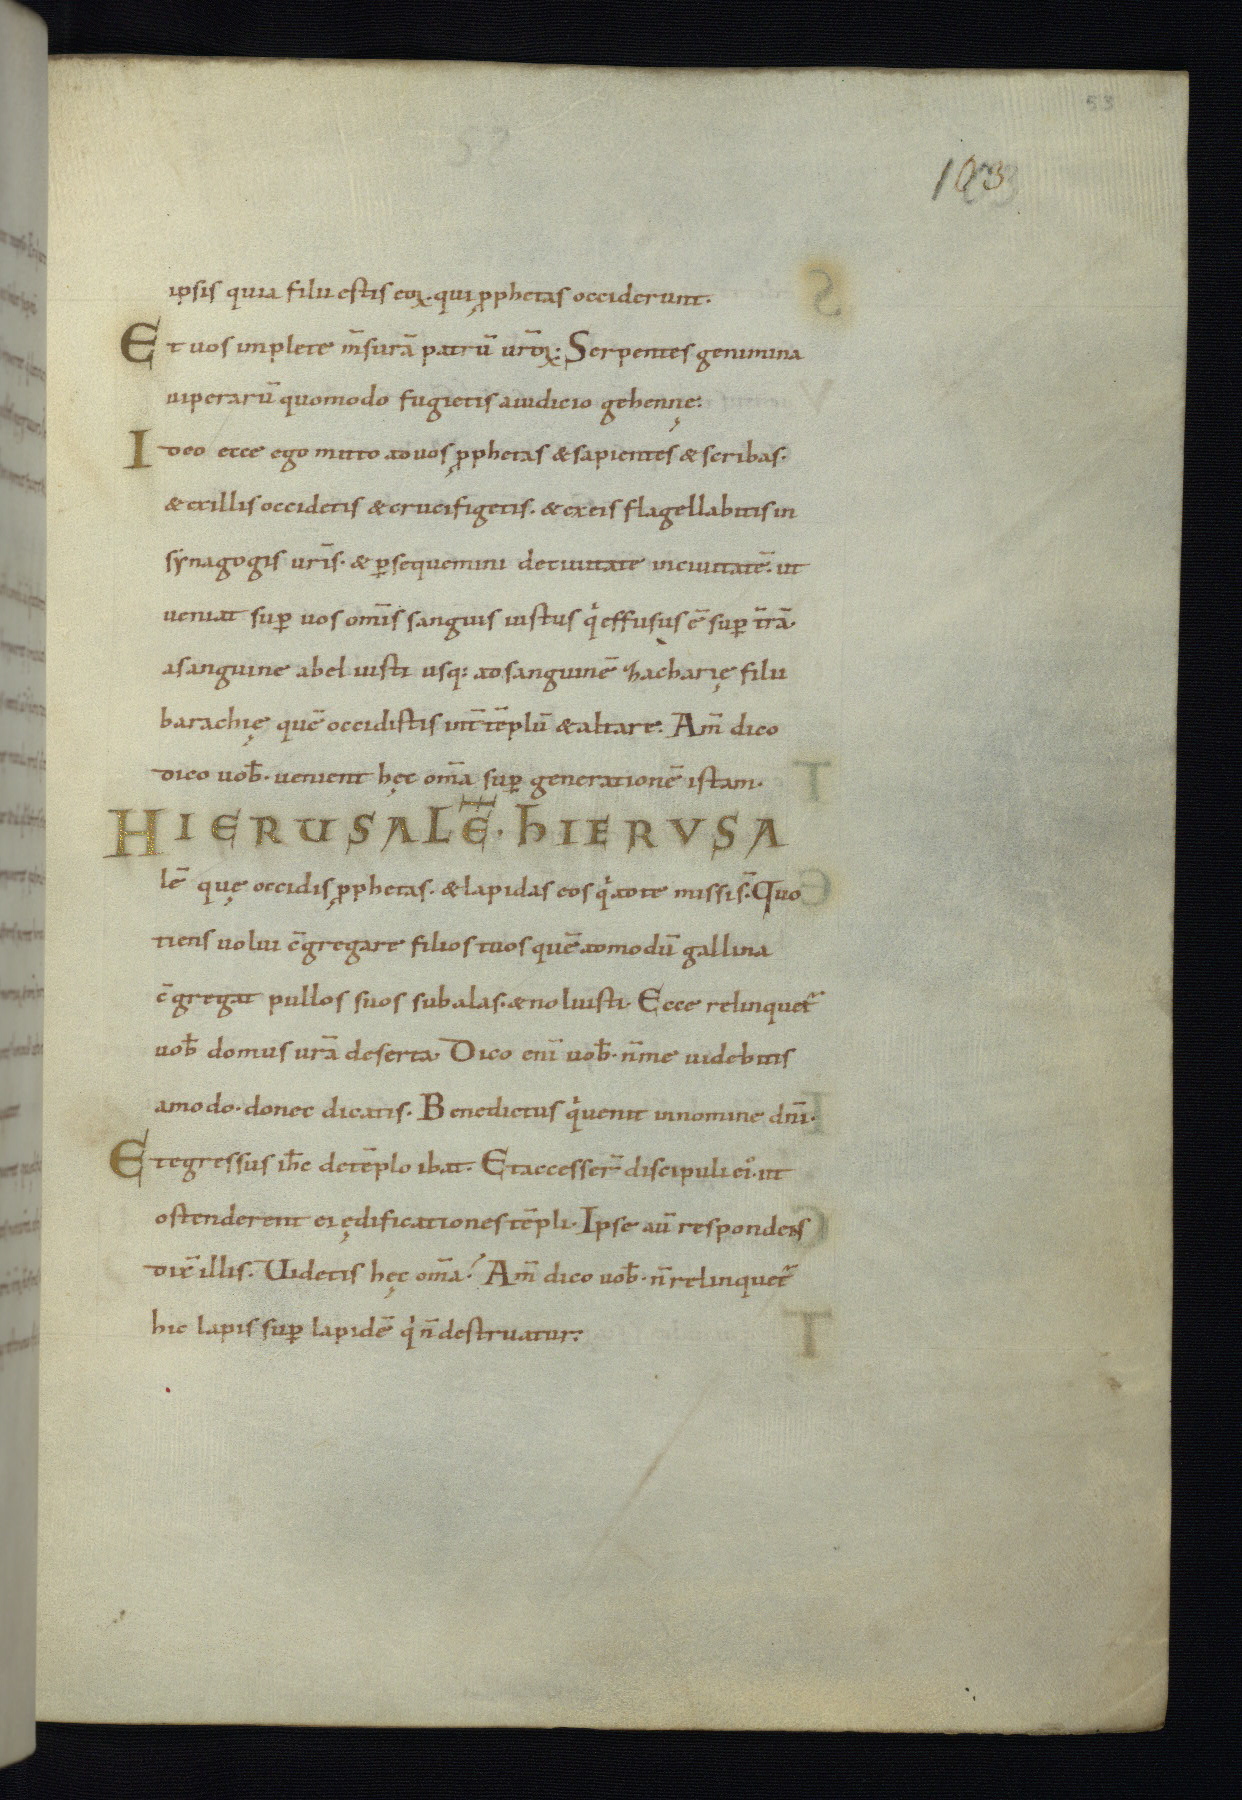 53
103
ipsis quia filii estis eoꝝ. qui ꝓphetas occiderunt.
Et uos implete m̄surā patrū ur̄oꝝ: Serpentes genimina
uiperarū quomodo fugietis aiudicio gehennę:
Ideo ecce ego mitto aduos ꝓphetas & sapientes & scribas.
& exillis occidetis & crucifigetis. & exeis flagellabitis in
synagogis ur̄is. & ꝑsequemini deciuitate inciuitatē. ut
ueniat suꝑ uos omīs sanguis iustus q̇ effusus ē suꝑ t̄rā.
asanguine abel iusti usq: adsanguinē zacharię filii
barachię quē occidistis int̄ tēplū & altare. Am̄ dico
dico uob̄. uenient hęc om̄a suꝑ generationē istam.
HIERUSALĒ. hIERVSA
lē quę occidis ꝓphetas. & lapidas eos q̇ adte missis̄. Quo
tiens uolui c̄gregare filios tuos quē admodū gallina
c̄gregat pullos suos subalas. & noluisti. Ecce relinquet̄
uob̄ domus ur̄a deserta. Dico enī uob̄. n̄ me uidebitis
amodo. donec dicatis. Benedictus q̇ uenit innomine dn̄i.
Etegressus ih̄c detēplo ibat. Etaccesser̄ discipuli ei᾽. ut
ostenderent ei ędificationes tēpli. Ipse aū respondens
dix̄ illis. Uidetis hęc om̄a? Am̄ dico uob̄. n̄ relinquet̄
hic lapis suꝑ lapidē q̇ n̄ destruatur: